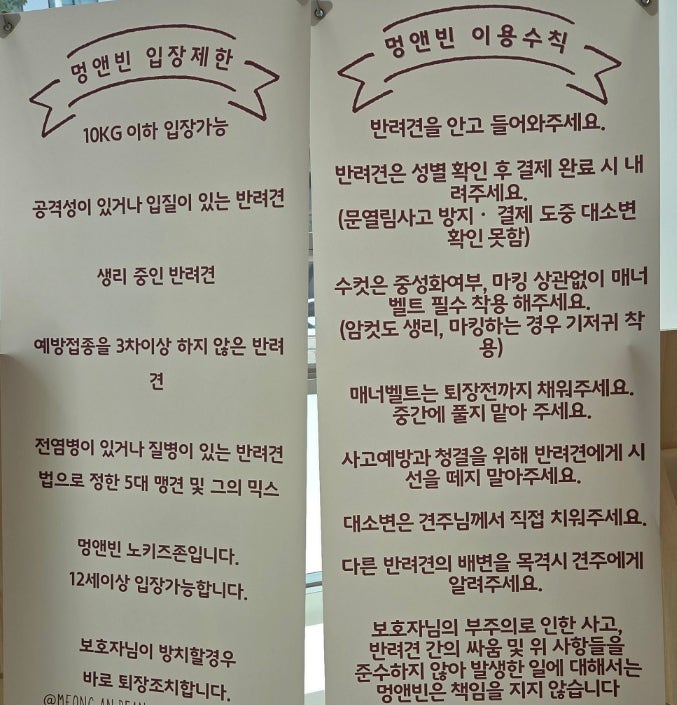 멍앤빈 입장제한
10KG 이하 입장가능
공격성이 있거나 입질이 있는 반려견
생리 중인 반려견
예방접종을 3차이상 하지 않은 반려
견
전염병이 있거나 질병이 있는 반려견
법으로 정한 5대 맹견 및 그의 믹스
멍앤빈 노키즈존입니다.
12세이상 입장가능합니다.
보호자님이 방치할경우
바로 퇴장조치합니다.
멍앤빈 이용수칙
반려견을 안고 들어와주세요.
반려견은 성별 확인 후 결제 완료 시 내
려주세요.
(문열림사고 방지 · 결제 도중 대소변
확인 못함)
수컷은 중성화여부, 마킹 상관없이 매너
벨트 필수 착용 해주세요.
(암컷도 생리, 마킹하는 경우 기저귀 착
용)
매너벨트는 퇴장전까지 채워주세요.
중간에 풀지 맡아 주세요.
사고예방과 청결을 위해 반려견에게 시
선을 떼지 말아주세요.
대소변은 견주님께서 직접 치워주세요.
다른 반려견의 배변을 목격시 견주에게
알려주세요.
보호자님의 부주의로 인한 사고,
반려견 간의 싸움 및 위 사항들을
준수하지 않아 발생한 일에 대해서는
멍앤빈은 책임을 지지 않습니다